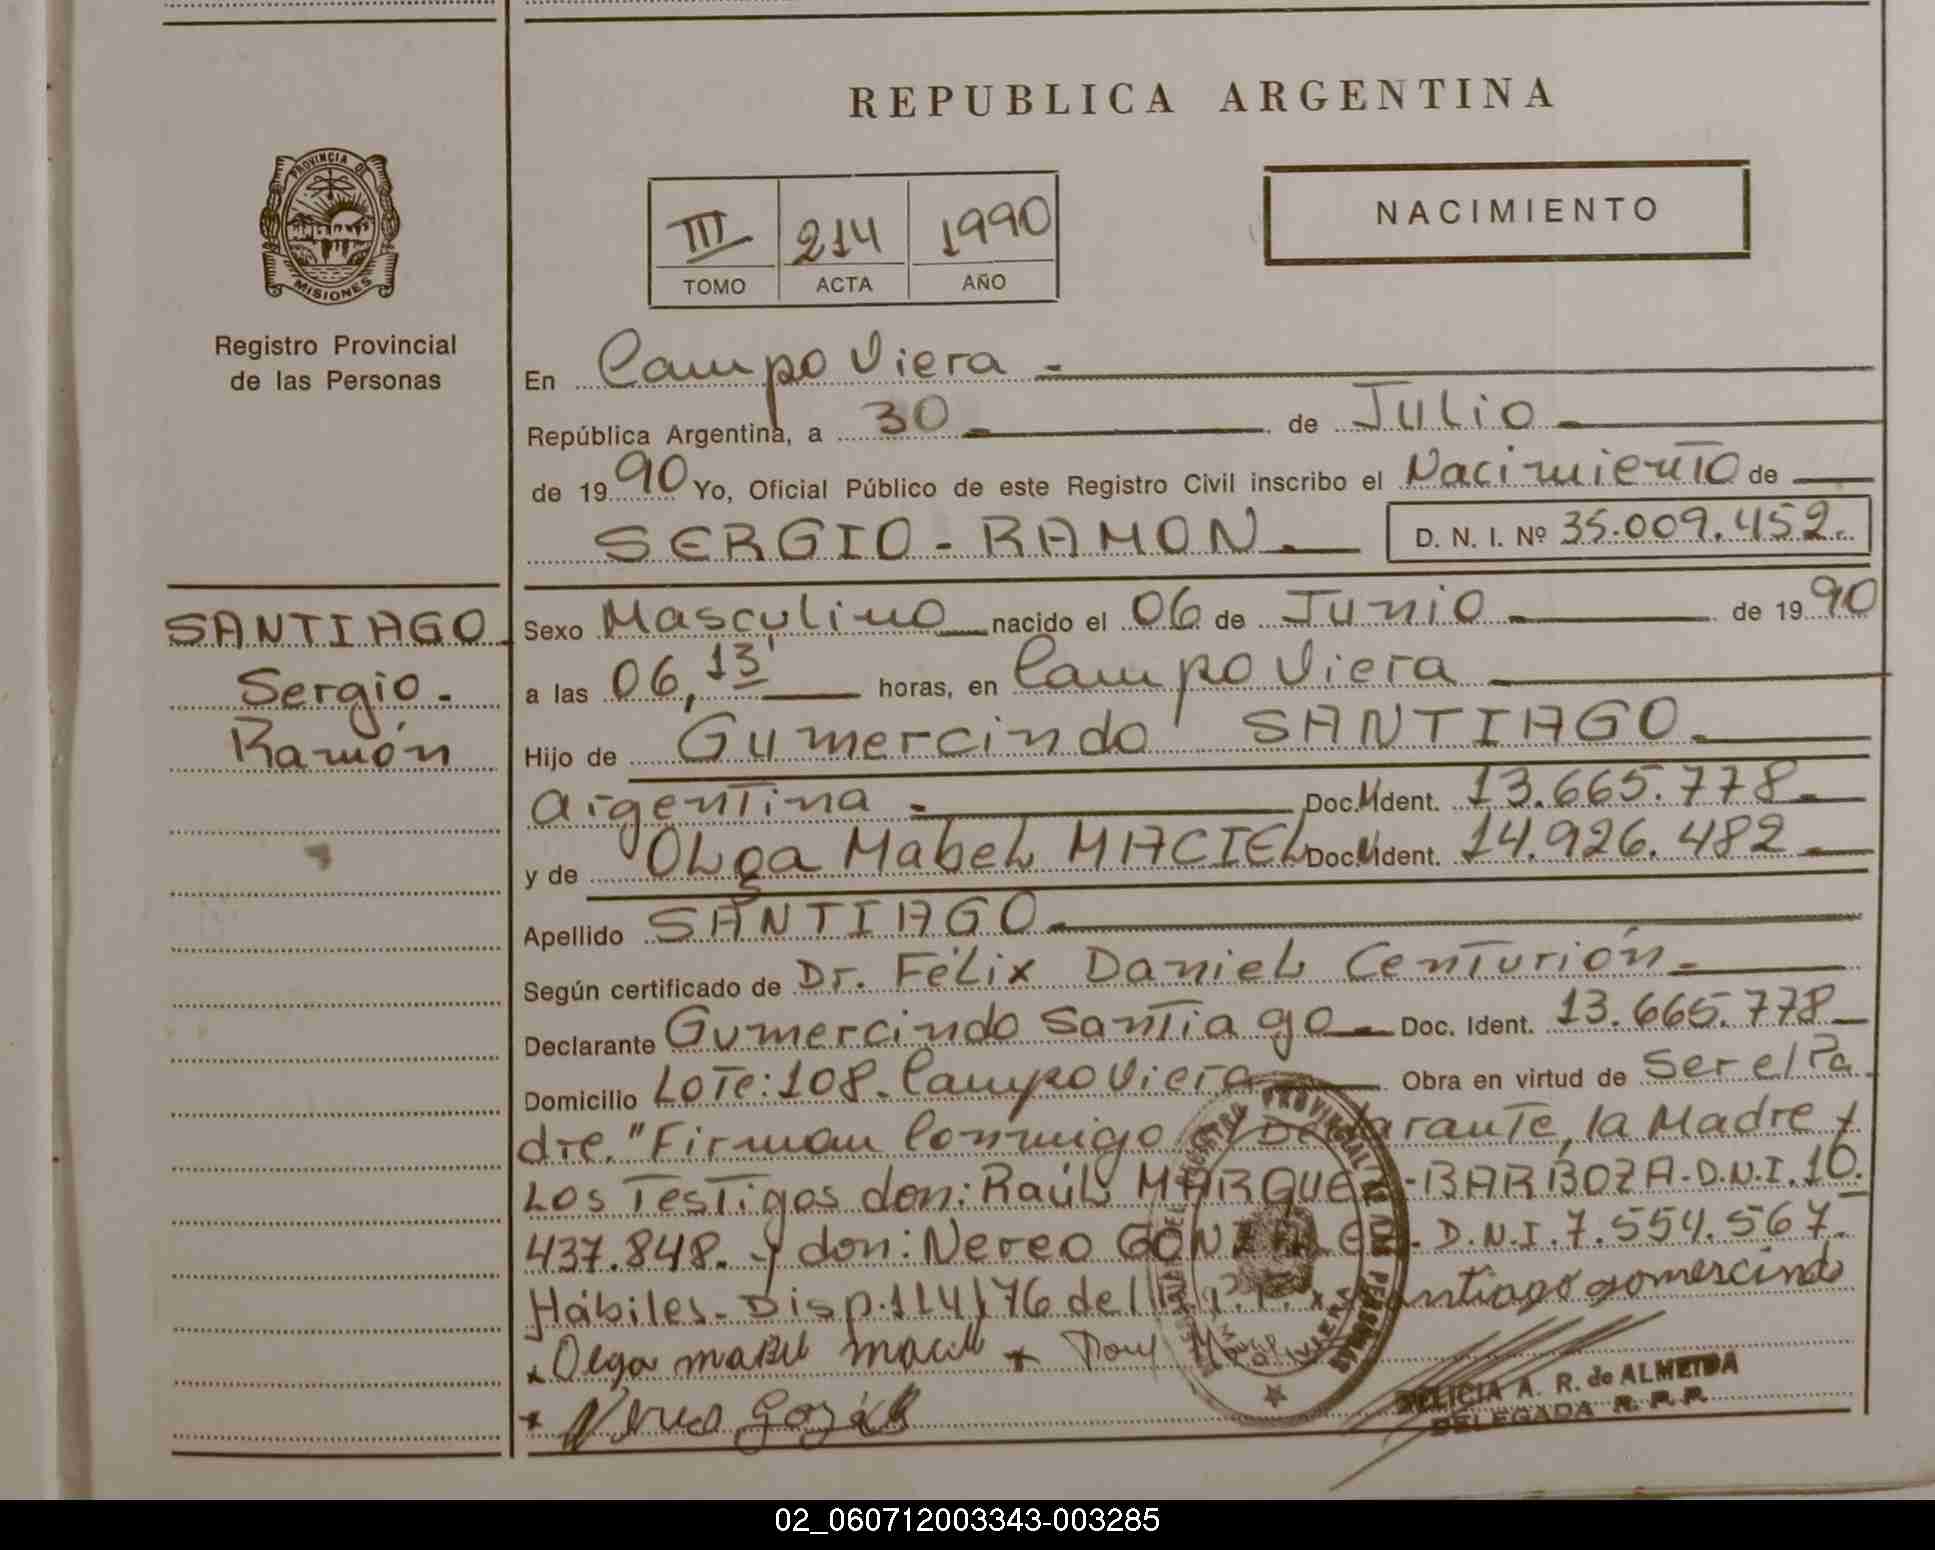 REPUBLICA ARGENTINA
PROVINCIA DE
MISIONES
Registro Provincial
de las Personas
III 214 1990
TOMO ACTA AÑO
NACIMIENTO
En Campo Viera -
República Argentina, a 30 - de Julio
de 1990 Yo, Oficial Público de este Registro Civil inscribo el Nacimiento de
SERGIO - RAMON D. N. I. Nº 35.009.452.
SANTIAGO
Sergio -
Ramón
Sexo Masculino nacido el 06 de Junio de 1990
a las 06,13' horas, en Campo Viera
Hijo de Gumercindo SANTIAGO.
argentina - Doc. Ident. 13.665.778.
y de OLga MabeL MACIEL Doc. Ident. 14.926.482
Apellido SANTIAGO.
Según certificado de Dr. FéLix DanieL Centurión.
Declarante Gumercindo Santiago Doc. Ident. 13.665.778
Domicilio Lote: 108. Campo Viera Obra en virtud de ser el Pa
dre." Firman Conmigo el Declarante, la Madre y
Los Testigos don: RaúL MARQUEZ - BARBOZA - D.N.I. 10.
437.848. y don: Nereo GONZALEZ. D.N.I. 7.554.567.
Hábiles - Disp. 114/76 del x Santiago gomercindo
x Olga mabel maciel x
x Nereo
REGISTRO PROVINCIAL DE LAS PERSONAS
DELICIA A. R. de ALMEIDA
DELEGADA R. P. P.
02_060712003343-003285